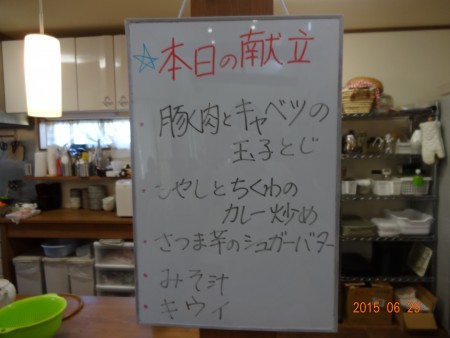 ☆本日の献立
・豚肉とキャベツの
玉子とじ
・もやしとちくわの
カレー炒め
・さつま芋のシュガーバター
・みそ汁
・キウイ
2015 06 29